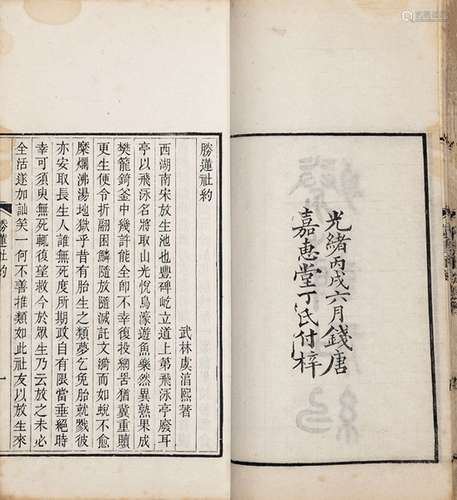 光緒丙戌六月錢唐
嘉惠堂丁氏付梓
勝蓮社約
武林虞淳熙著
西湖南宋放生池也豐碑屹立道上第飛泳亭廢耳
亭以飛泳名將取山光悅鳥濠遊魚樂然異熟果成
樊籠錡釜中幾許能全即不幸復投網罟猶冀重贖
更生便令折翩困鱗隨放隨滅託文漪而如蛻不愈
糜爛沸湯地獄乎昔有胎生之類夢乞免胎就戮彼
亦安取長生人誰無死度所期政自有限當垂絕時
幸可須臾無死輒復望救今於眾生乃云放之未必
全活遂加訕笑一何不善推類如此社友以放生來
勝蓮社約
一